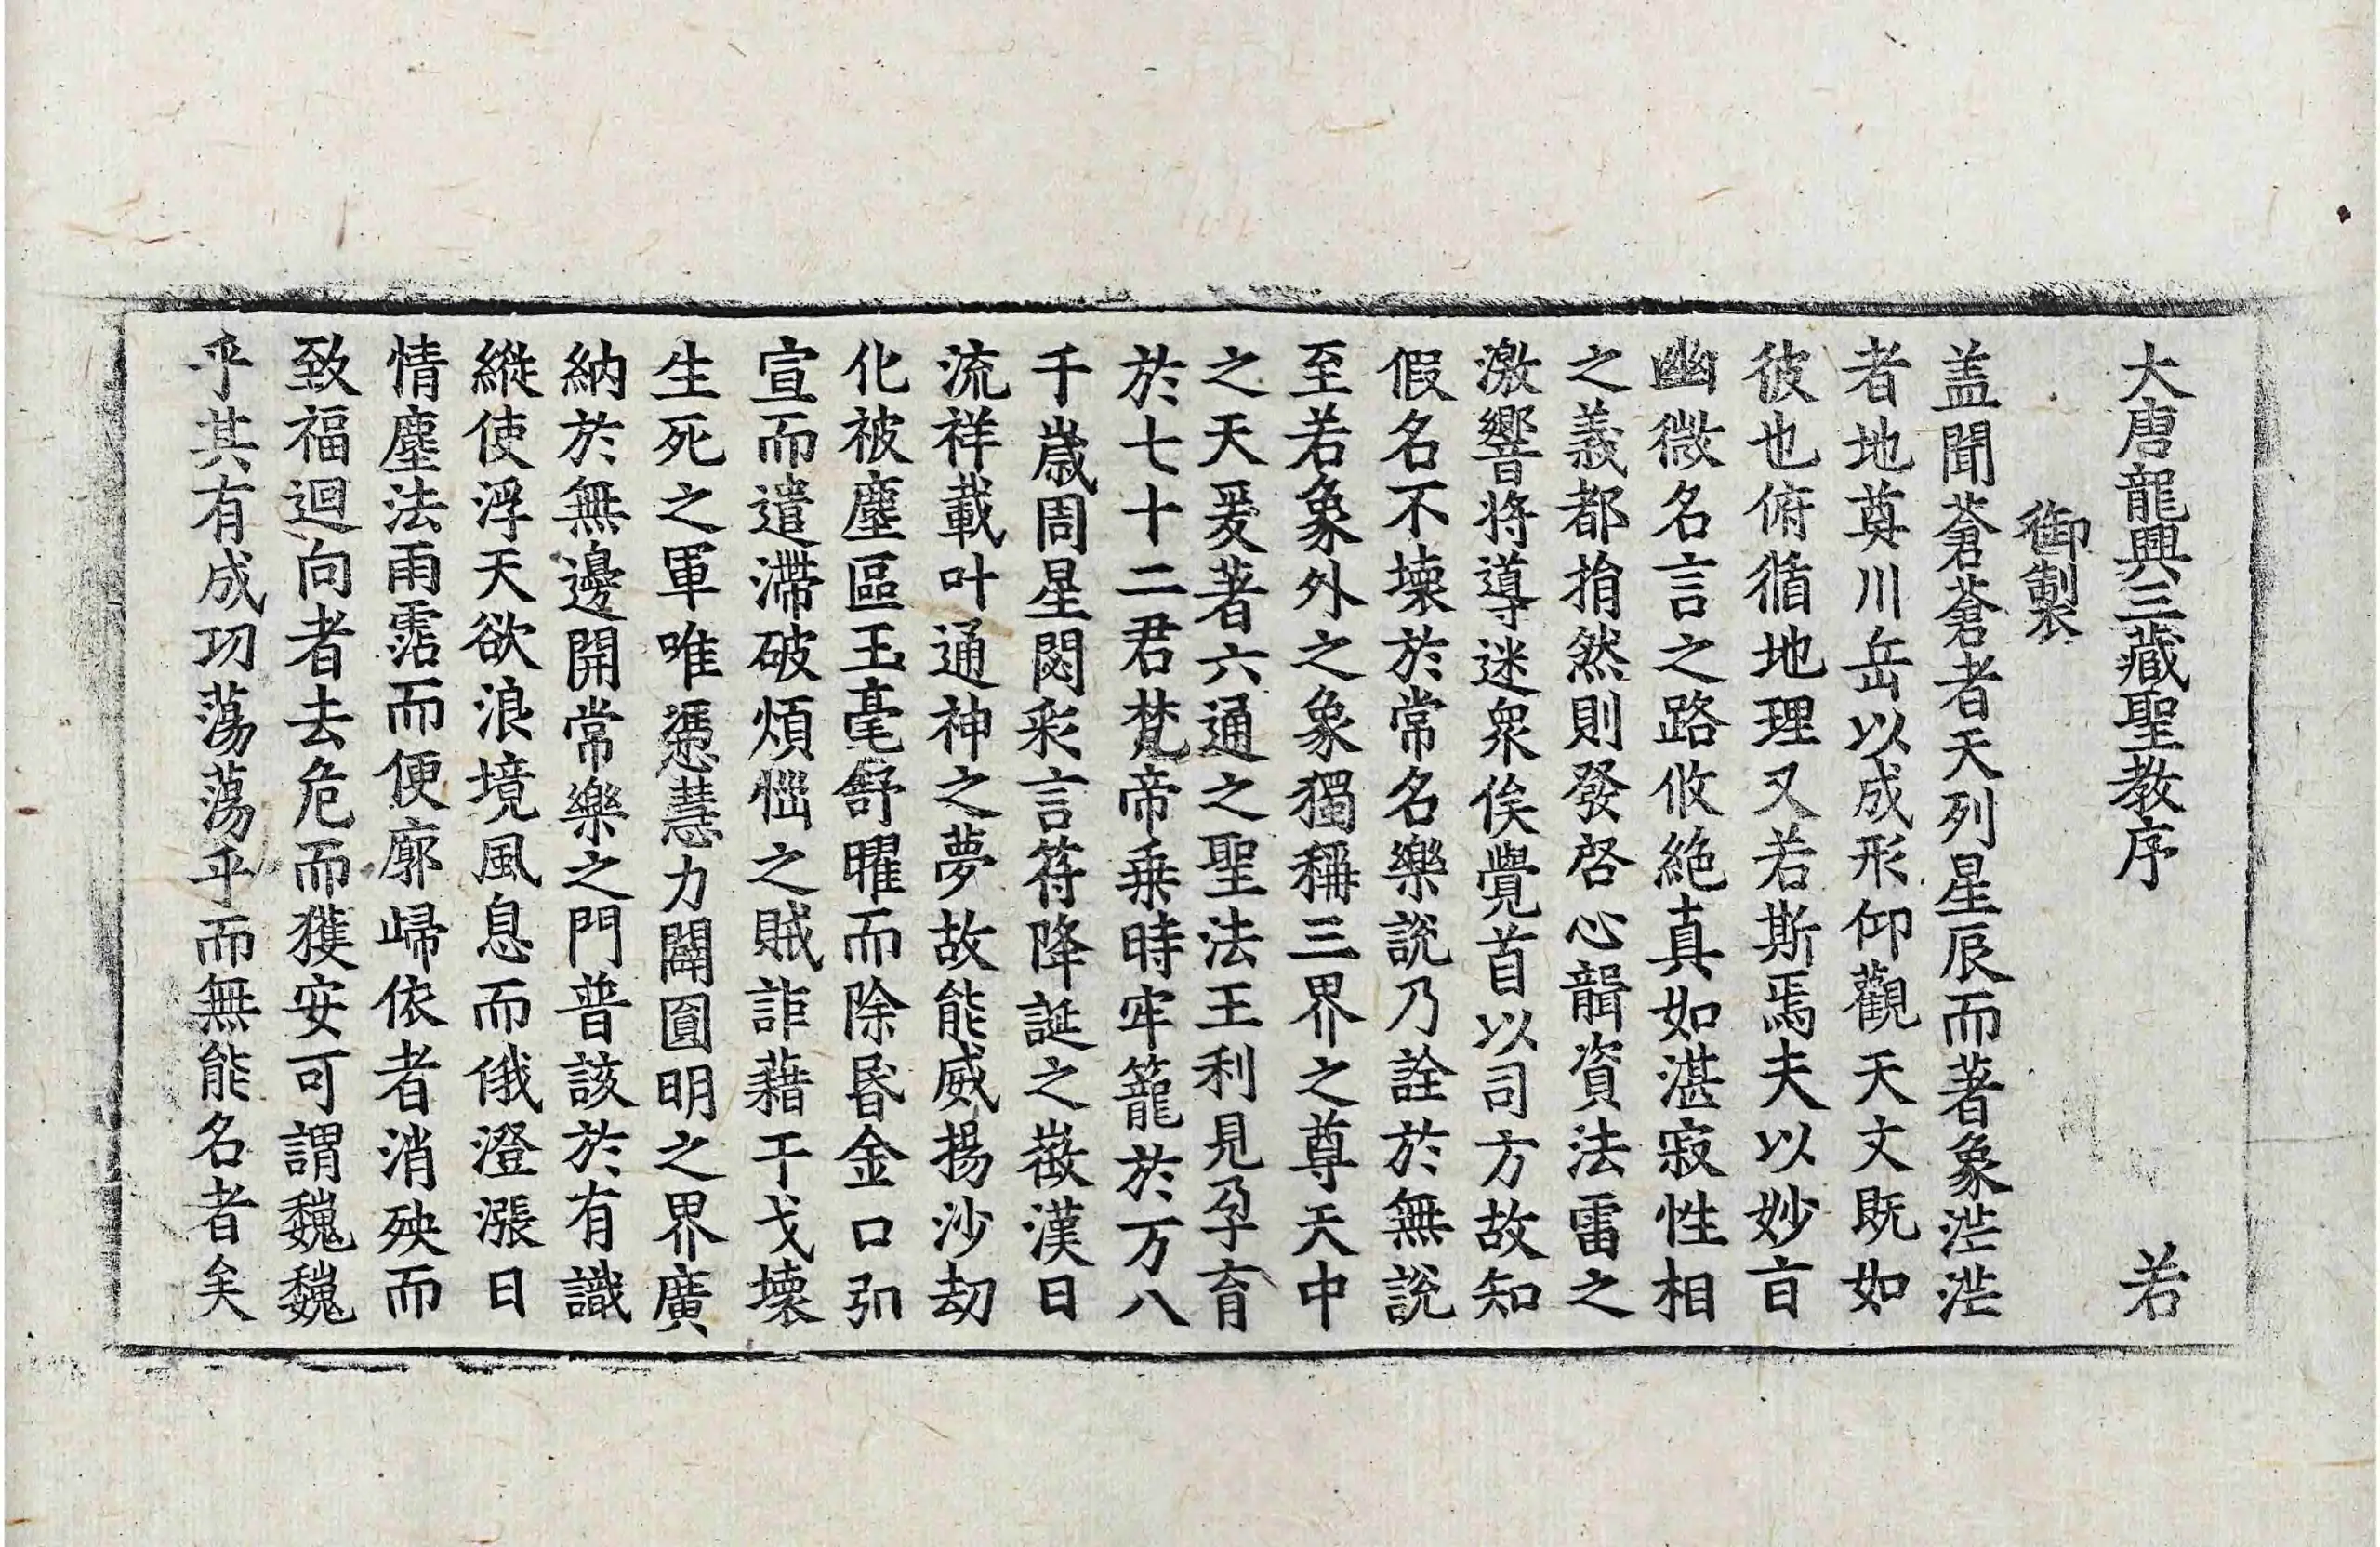 大唐龍興三藏聖教序 若
御製
盖聞蒼蒼者天列星辰而著象茫茫
者地奠川岳以成形仰觀天文既如
彼也俯循地理又若斯焉夫以妙盲
幽微名言之路攸絶真如湛寂性相
之義都捐然則發啓心韻資法雷之
激響將導迷衆俟覺首以司方故知
假名不壞於常名樂說乃詮於無說
至若象外之象獨稱三界之尊天中
之天爰著六通之聖法王利見孕育
於七十二君梵帝乗時牢籠於万八
千歲周星閟彩言符降誕之徵漢日
流祥載叶通神之夢故能威揚沙劫
化被塵區玉毫舒曜而除昬金口弘
宣而遣滯破煩惱之賊詎藉干戈壞
生死之軍唯憑慧力闢圓明之界廣
納於無邊開常樂之門普該於有識
縱使浮天欲浪境風息而俄澄漲日
情塵法雨霑而便廓歸依者消殃而
致福迴向者去危而獲安可謂巍巍
乎其有成功蕩蕩乎而無能名者矣